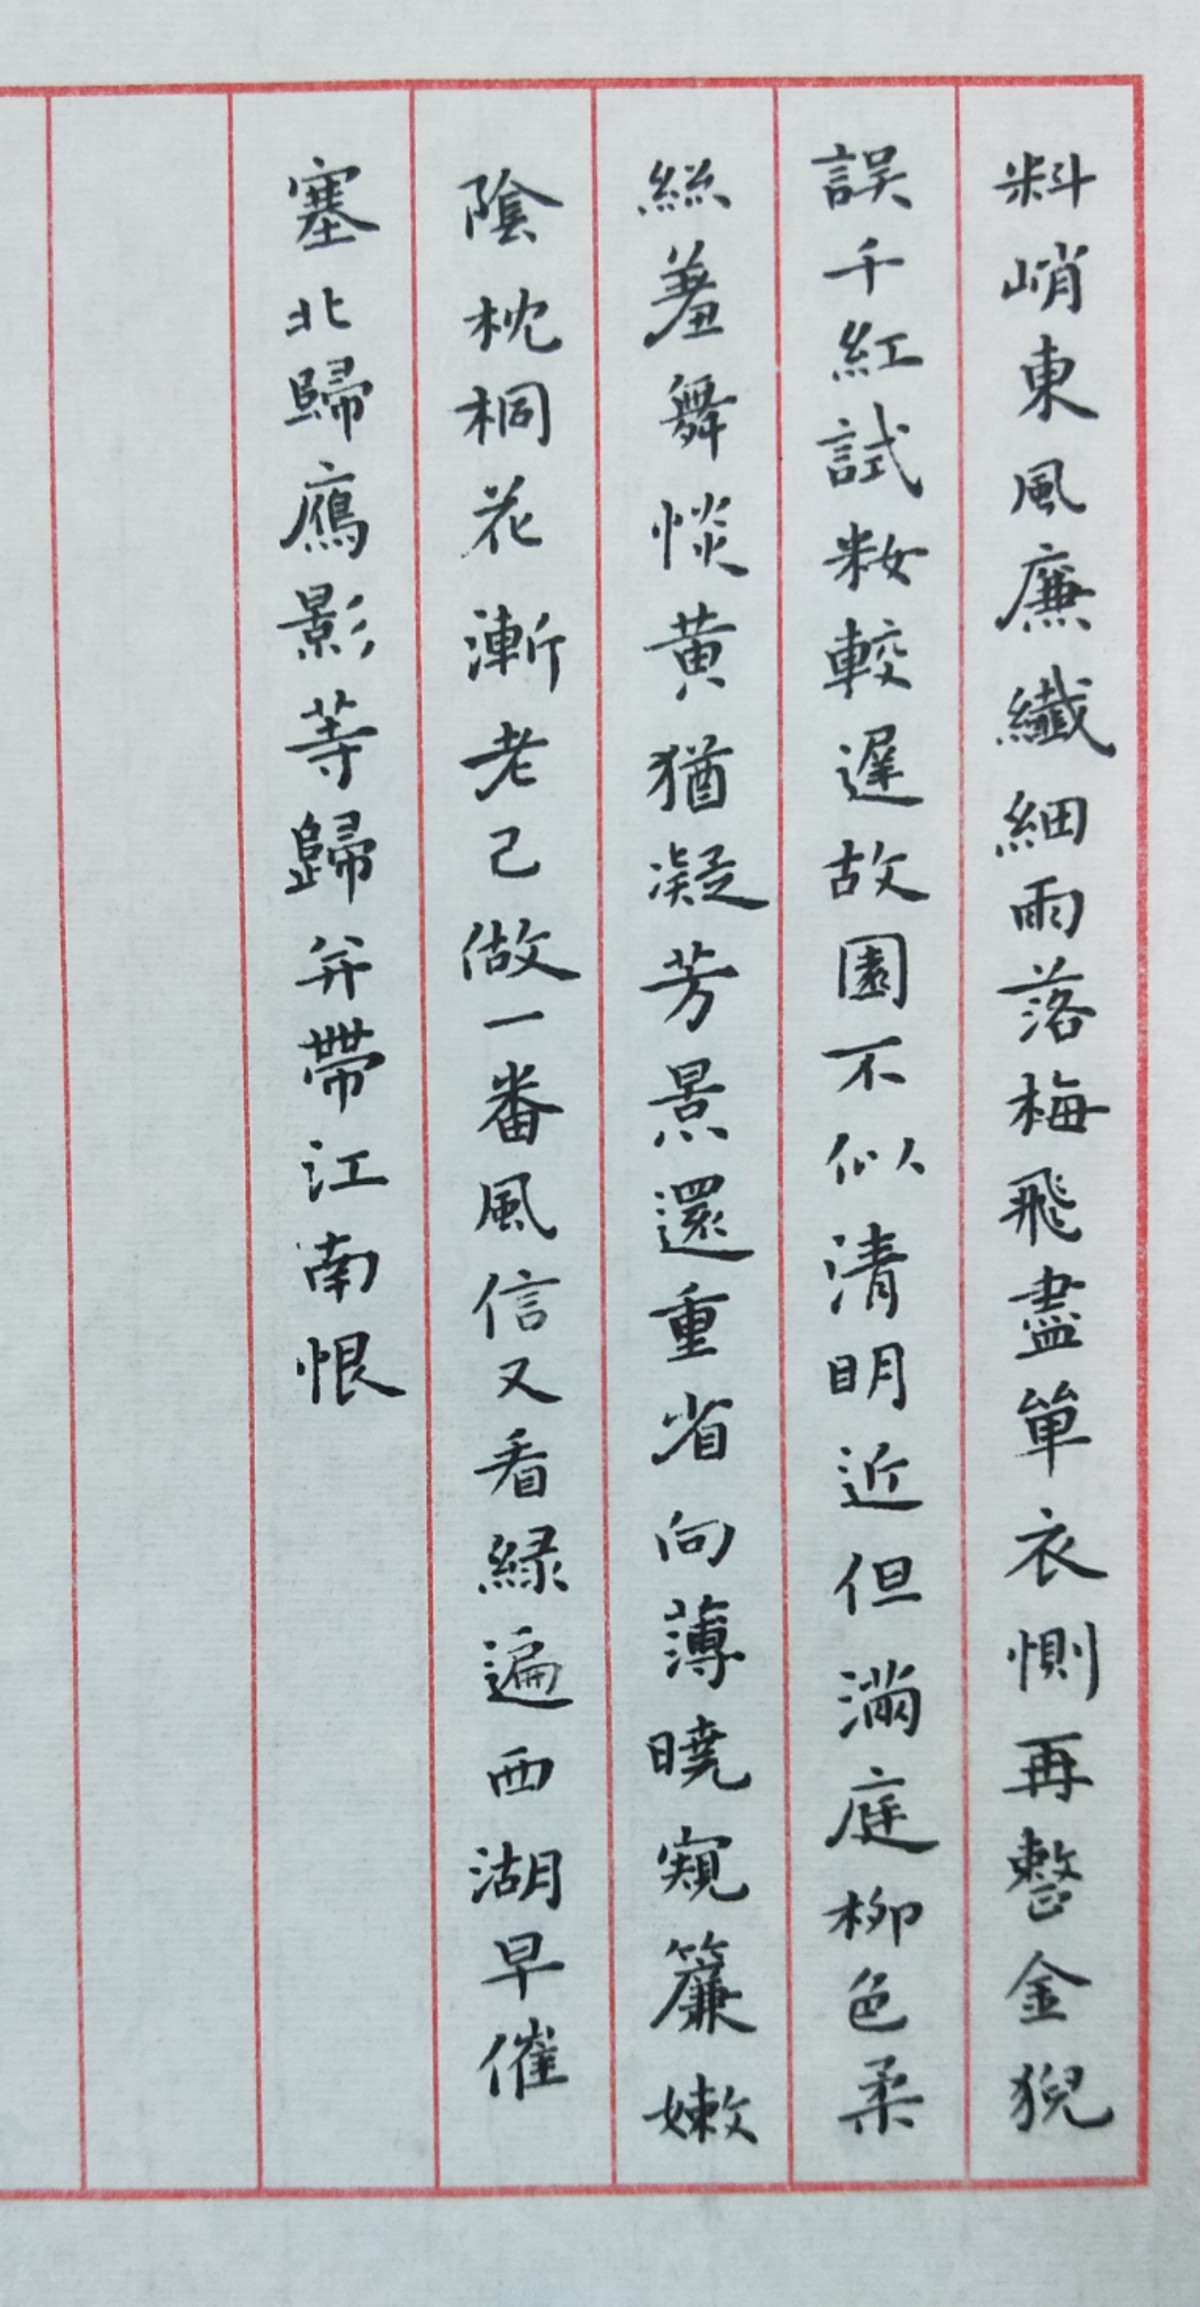 料峭東風廉纖細雨落梅飛盡單衣惻再整金猊
誤千紅試妝較遲故園不似清明近但滿庭柳色柔
絲羞舞惔黃猶凝芳景還重省向薄曉窺簾嫩
陰枕桐花漸老己做一番風信又看綠遍西湖早催
塞北歸鴈影等歸并帶江南恨